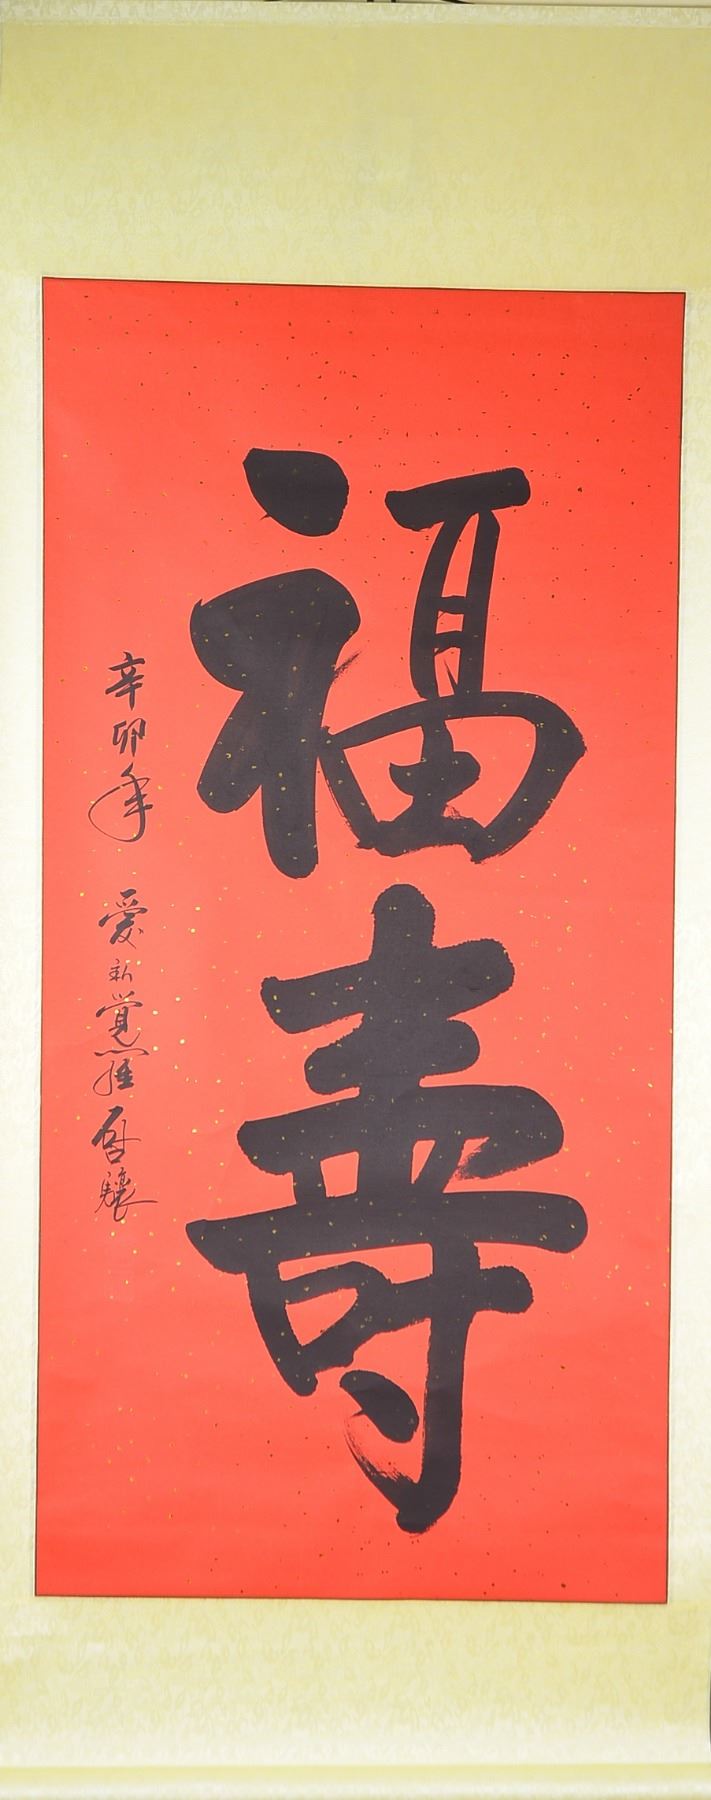 福壽
辛卯年 愛新覺羅 啟驤